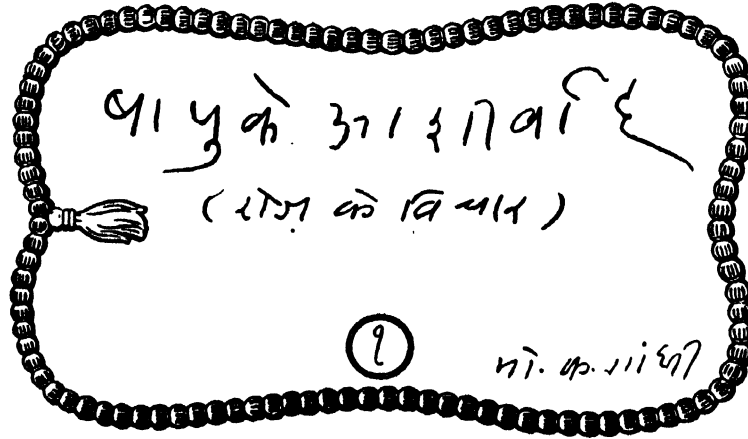 बापुके आशीर्वाद
(रोज़ के विचार)
१
मो. क. गांधी